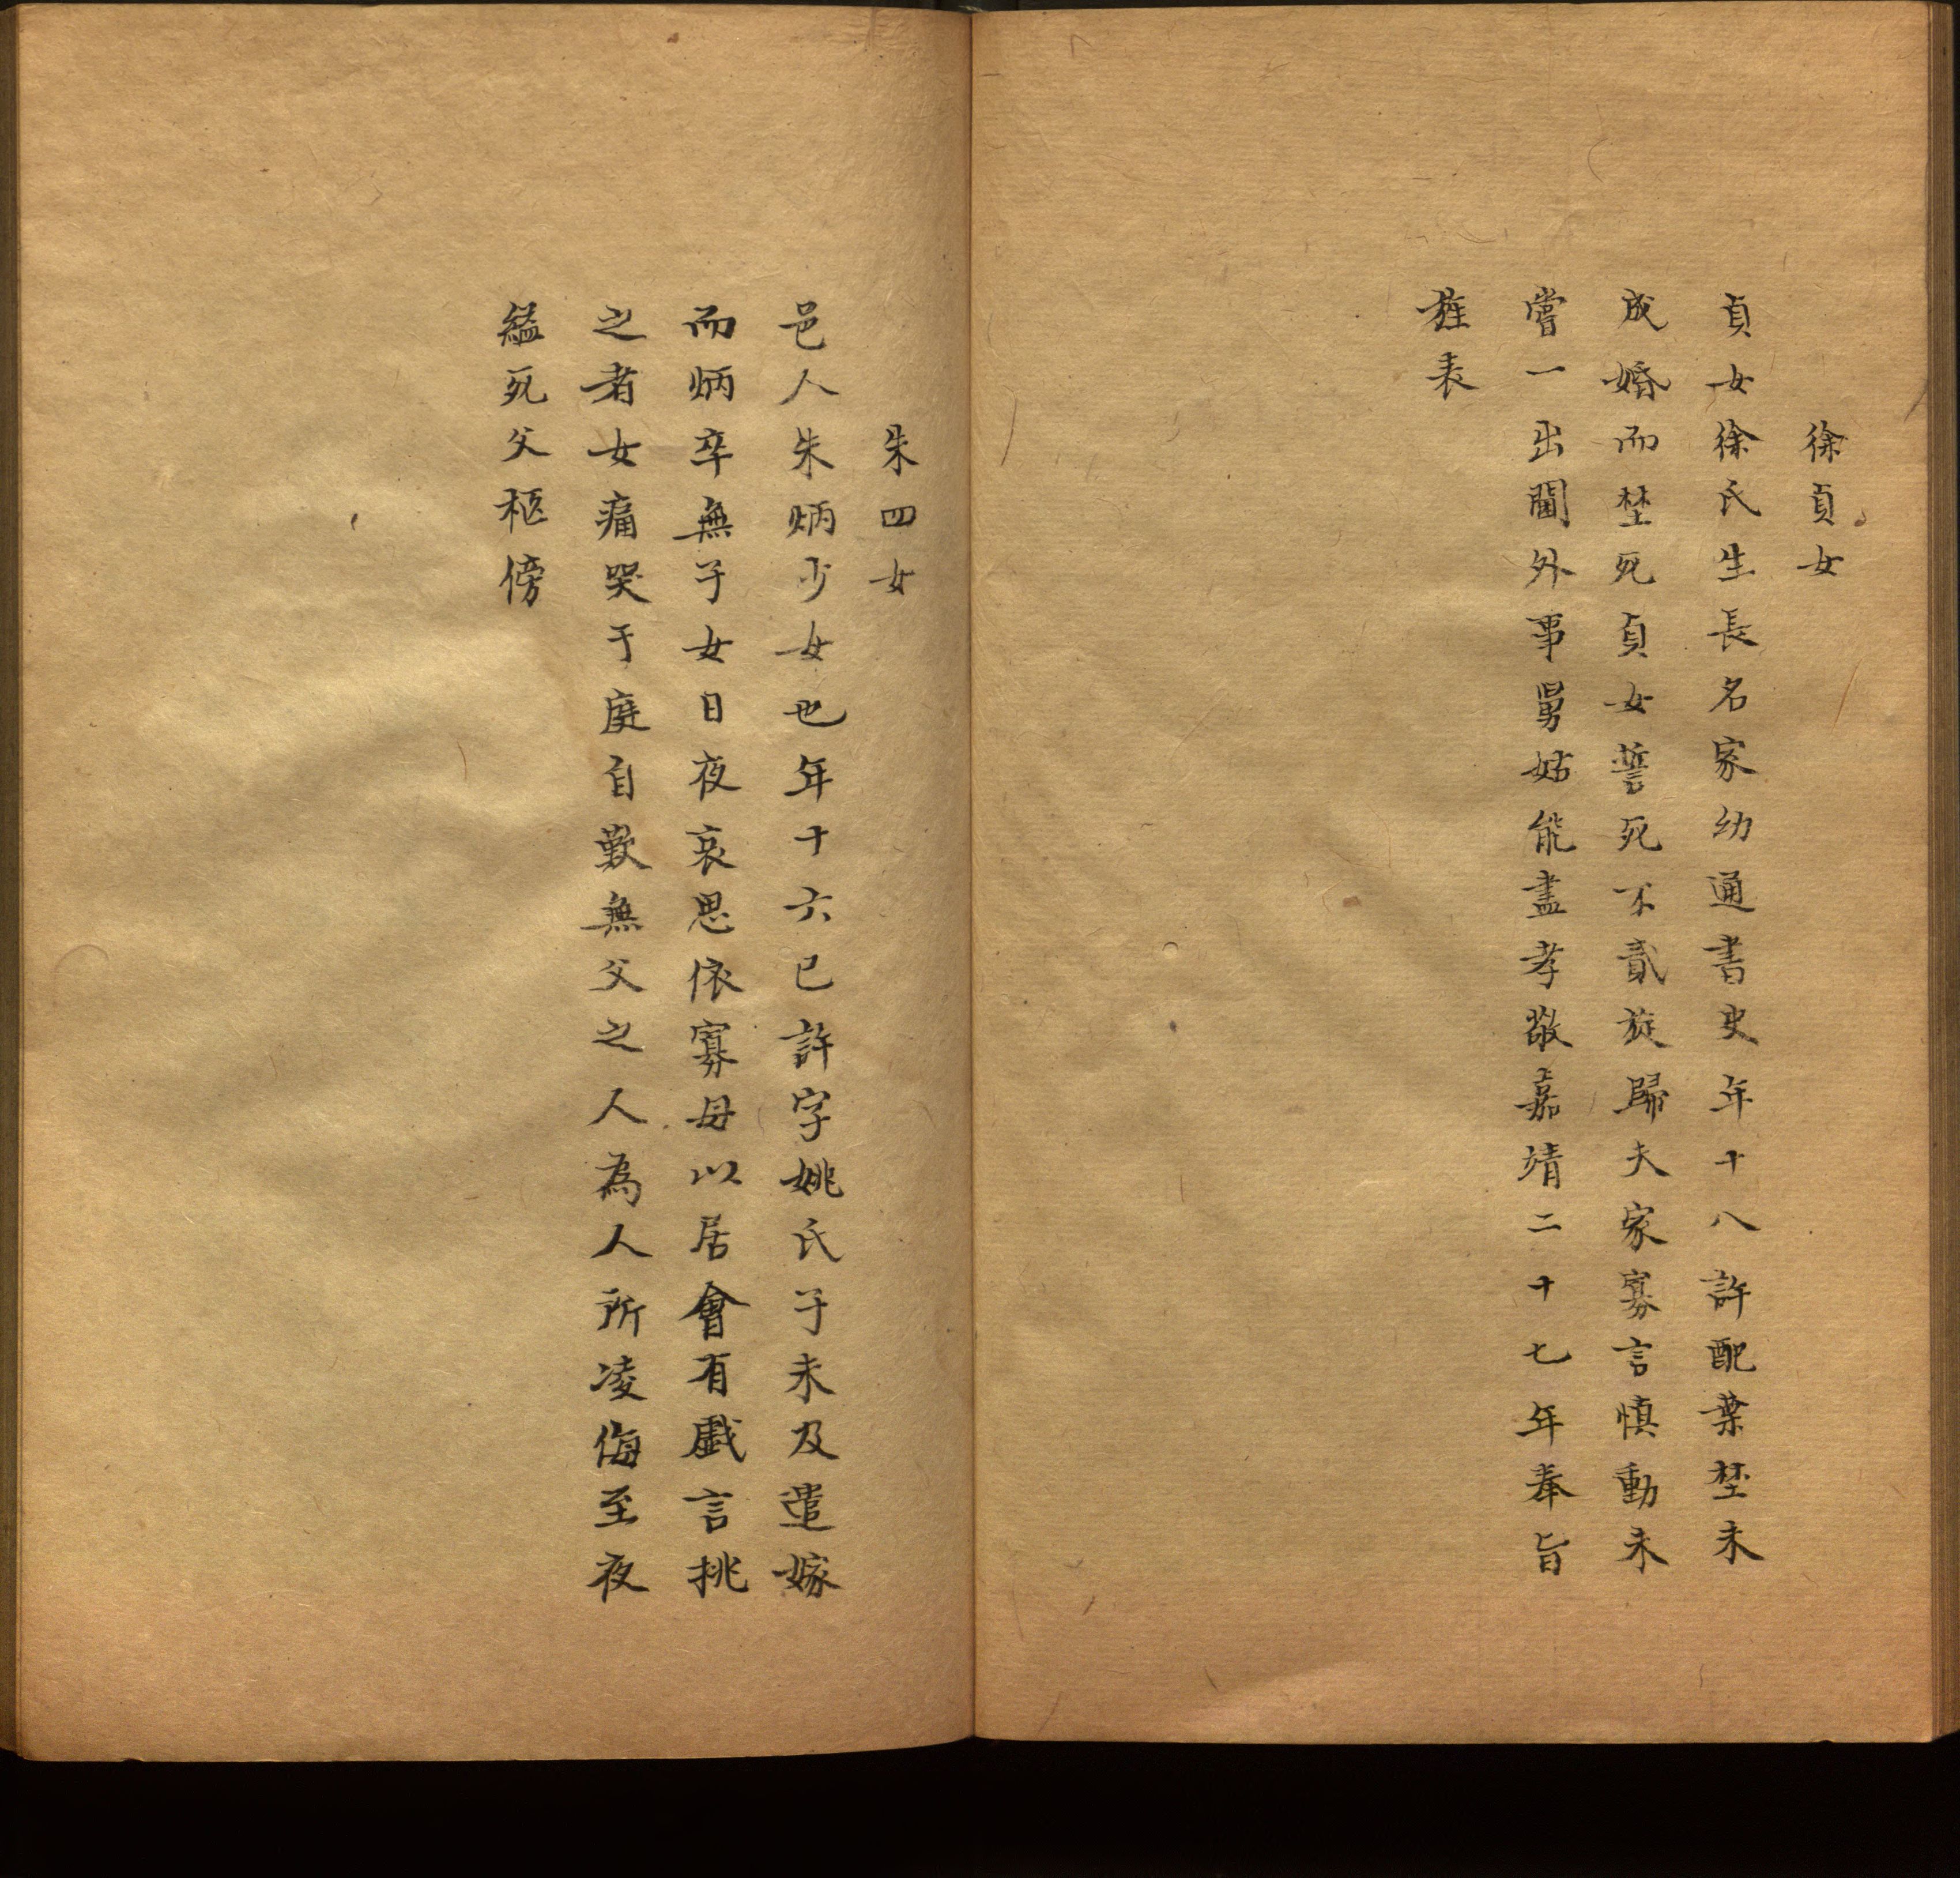 徐貞女
貞女徐氏生長名家幼通書史年十八許配葉埜未
成婚而埜死貞女誓死不貳旋歸夫家寡言慎動未
嘗一出閫外事舅姑能盡孝敬嘉靖二十七年奉旨
旌表
朱四女
邑人朱炳少女也年十六已許字姚氏子未及遣嫁
而炳卒無子女日夜哀思依寡母以居會有戲言挑
之者女痛哭于庭自歎無父之人為人所凌侮至夜
縊死父柩傍